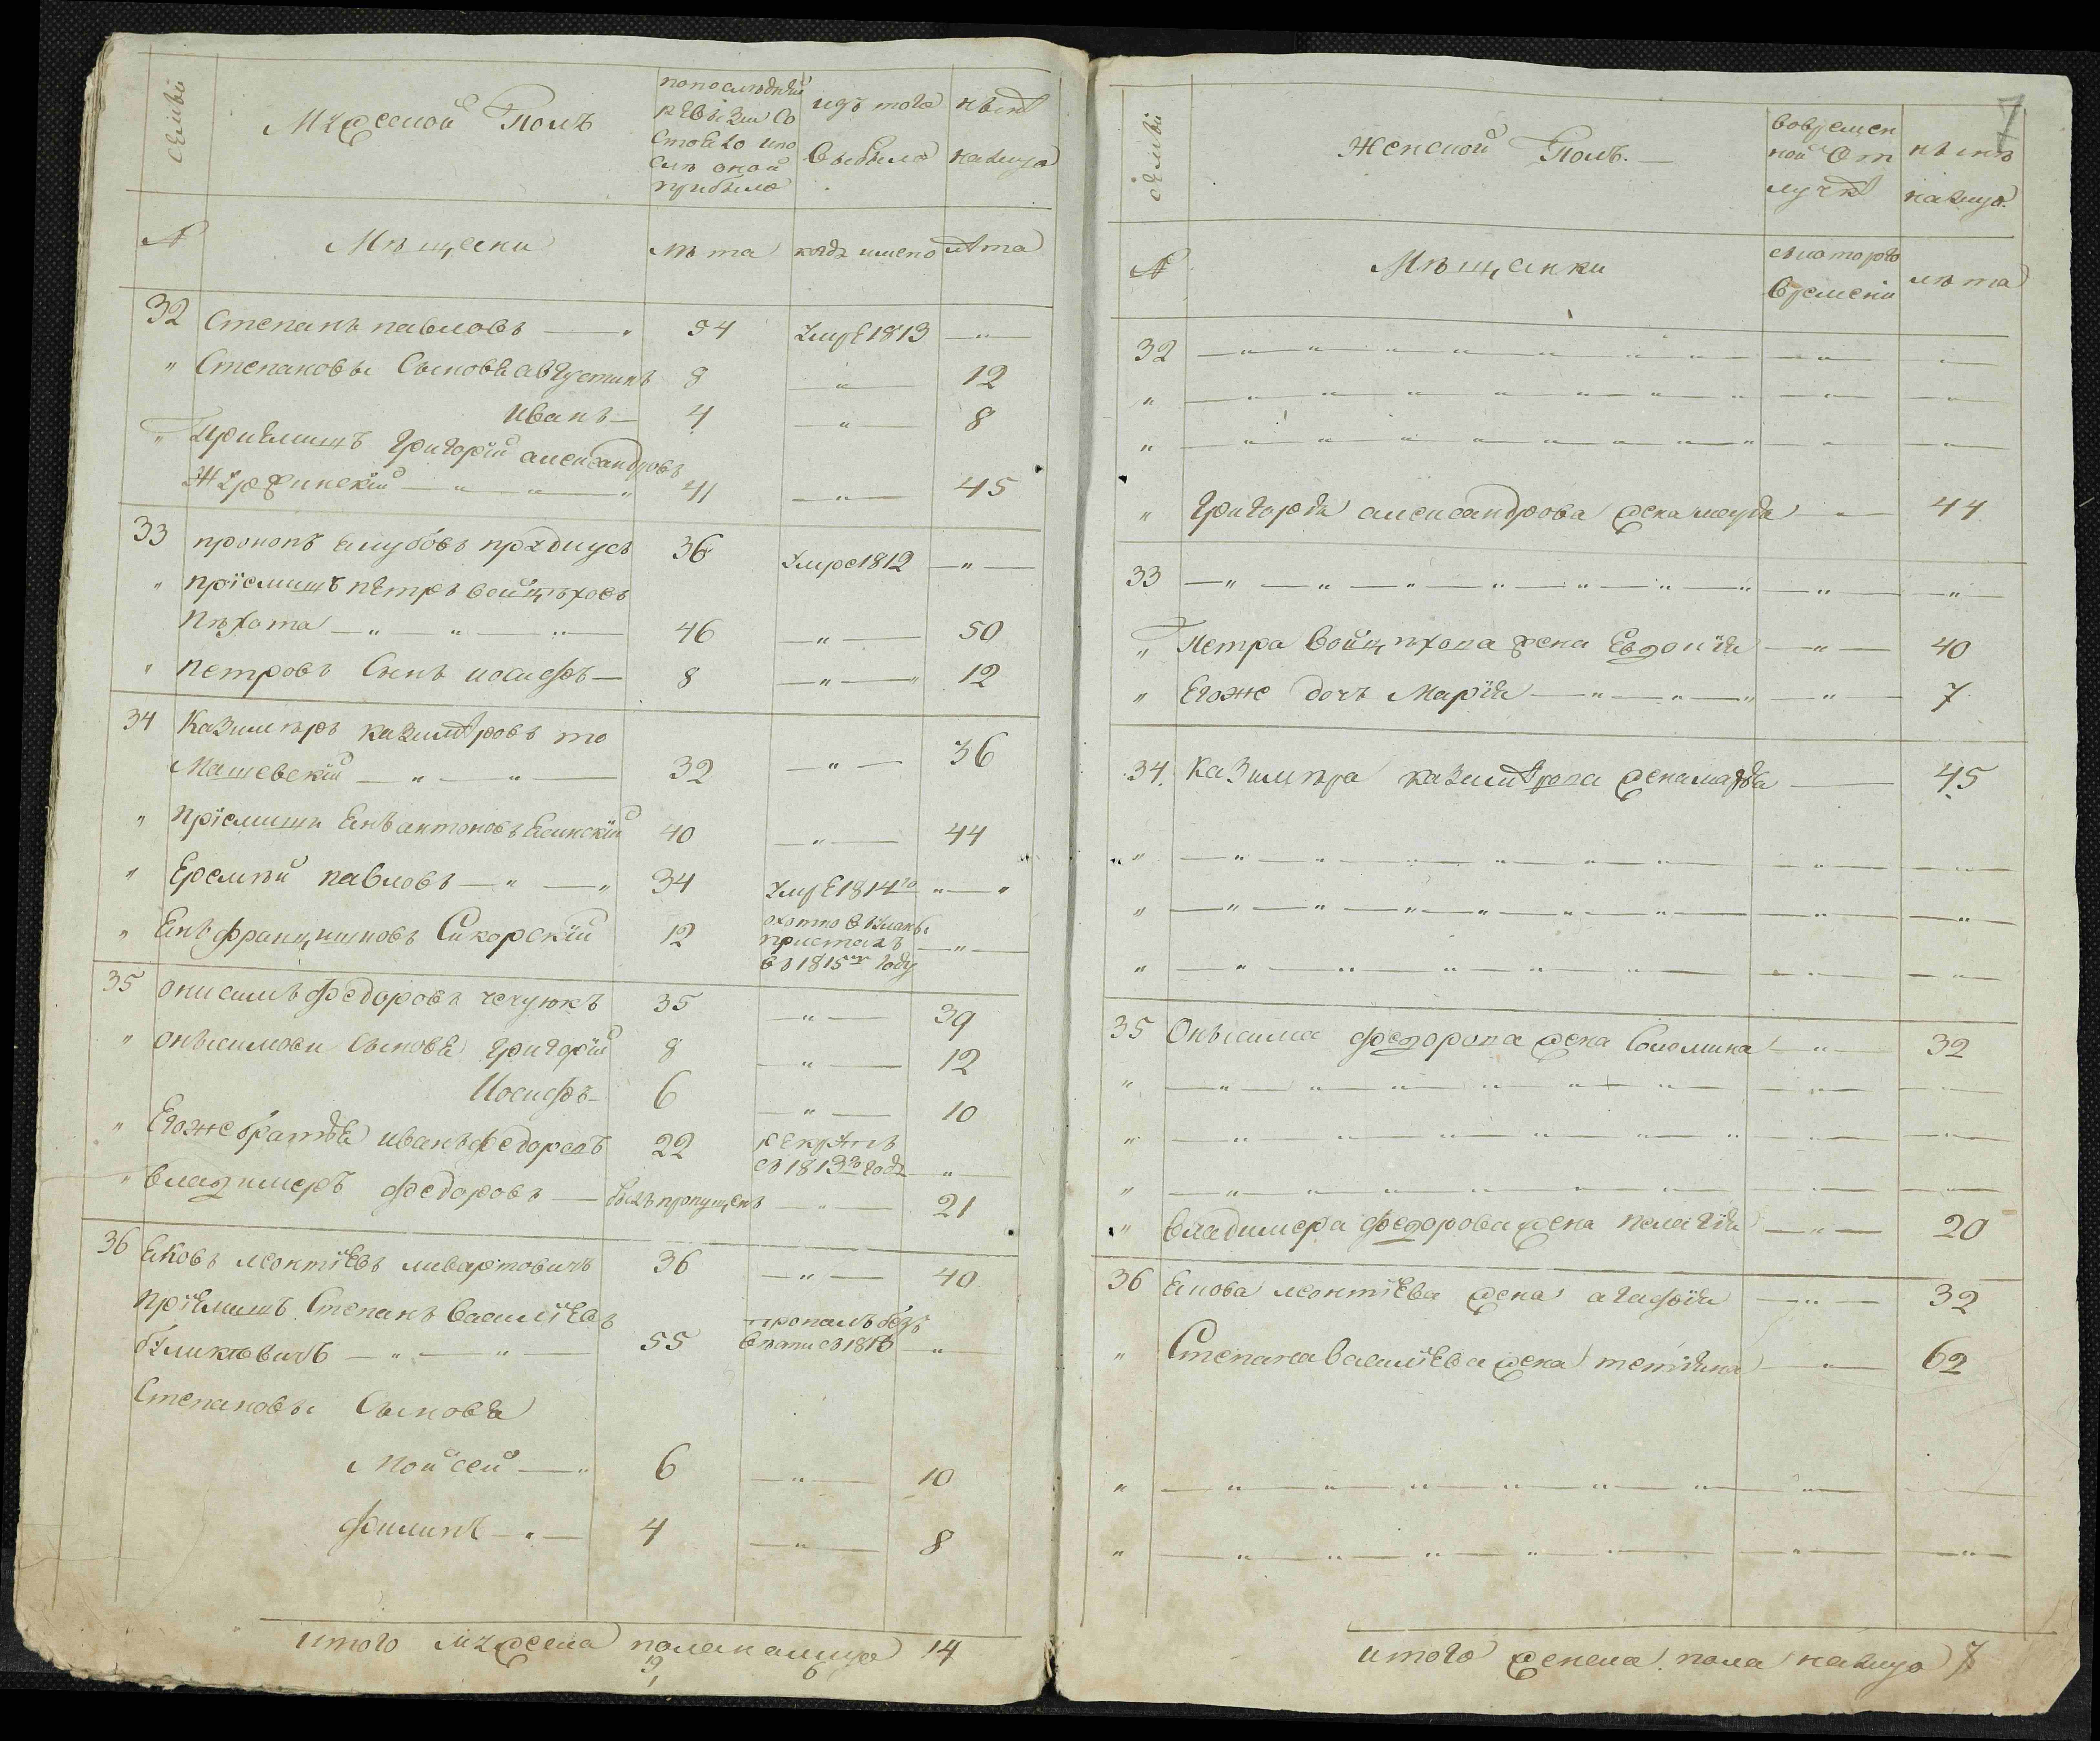 семьи
Мужеской Полъ
по последней
ревизіи со
стояло и по
слѣ оной
прибыло
изъ того
выбыло
нынѣ
налицо
№
Мѣщани
лѣта
когда имено
лѣта
32 Степанъ павловъ — „ 54 Умре 1813 — „ —
„ Степановы Сыновя августинъ 8 — „ — 12
Иванъ — 4 — „ — 8
„ Пріемишъ григорій александровъ
Журжинскій — „ — „ — „ 41 — „ — 45
33 прокопъ якубовъ прудиусъ 36 Умре 1812 — „ —
„ пріемишъ петръ войцѣховъ
пѣхота — „ — „ — „ — 46 — „ — 50
„ петровъ Сынъ иосифъ — 8 — „ — „ 12
34 Казимѣръ казимѣровъ то
Машевскій — „ — „ — 32 — „ — 36
„ пріемишъ Янъ антоновъ Ясинскій 40 — „ — 44
„ Еремѣй павловъ — „ — „ 34 Умре 1814го „ — „
„ Янъ францишковъ Сикорскій 12
присталъ
въ 1815м году — „ —
35 онисимъ федоровъ чечуюкъ 35 — „ — 39
„ онысимови Сыновя григорій 8 — „ — 12
Иосифъ — 6 — „ — 10
„ Егоже братья иванъ федоровъ 22 рекрутъ
съ 1813го года — „
„ владимеръ федоровъ — былъ пропущенъ — „ — 21
36 Яковъ леонтіевъ ливартовичъ 36 — „ — 40
пріемишъ Степанъ Василіевъ
55 пропалъ безъ
вѣсти „ —
Степановы Сыновя
Мойсей — „ 6 — „ — 10
филипъ — „ — 4 — „ — 8
итого мужеска пола налицо 14
7
семьи
Женской Полъ. —
вовремен
ной От
лучкѣ
нынѣ
налицо.
№
Мѣщанки
скоторого
времени
лѣта
32 — „ — „ — „ — „ — „ — „ — „ —
„ — „ — „ — „ — „ — „ — „ — „ —
„ — „ — „ — „ — „ — „ — „ — „ —
„ григорія александрова жена — „ — 44
33 — „ — „ — „ — „ — „ — „ — „ —
„ Петра Войцѣхова жена Евдокія — „ — 40
„ Егоже дочъ Марія — „ — „ — „ — „ — 7
34. Казимѣра казимѣрова жена — 45
„ — „ — „ — „ — „ — „ — „ — „ —
„ — „ — „ — „ — „ — „ — „ — „ —
„ — „ — „ — „ — „ — „ — „ — „ —
35 Онысима федорова жена Соломина — „ — 32
„ — „ — „ — „ — „ — „ — „ — „ —
„ — „ — „ — „ — „ — „ — „ — „ —
„ — „ — „ — „ — „ — „ — „ — „ —
„ владимера федорова жена пелагія — „ — 20
36 Якова леонтіева жена агафія — „ — 32
„ Степана Василіева жена тетіяна — „ — 62
„ — „ — „ — „ — „ — „ — „ — „ —
„ — „ — „ — „ — „ — „ — „ — „ —
итого женска пола налицо 7